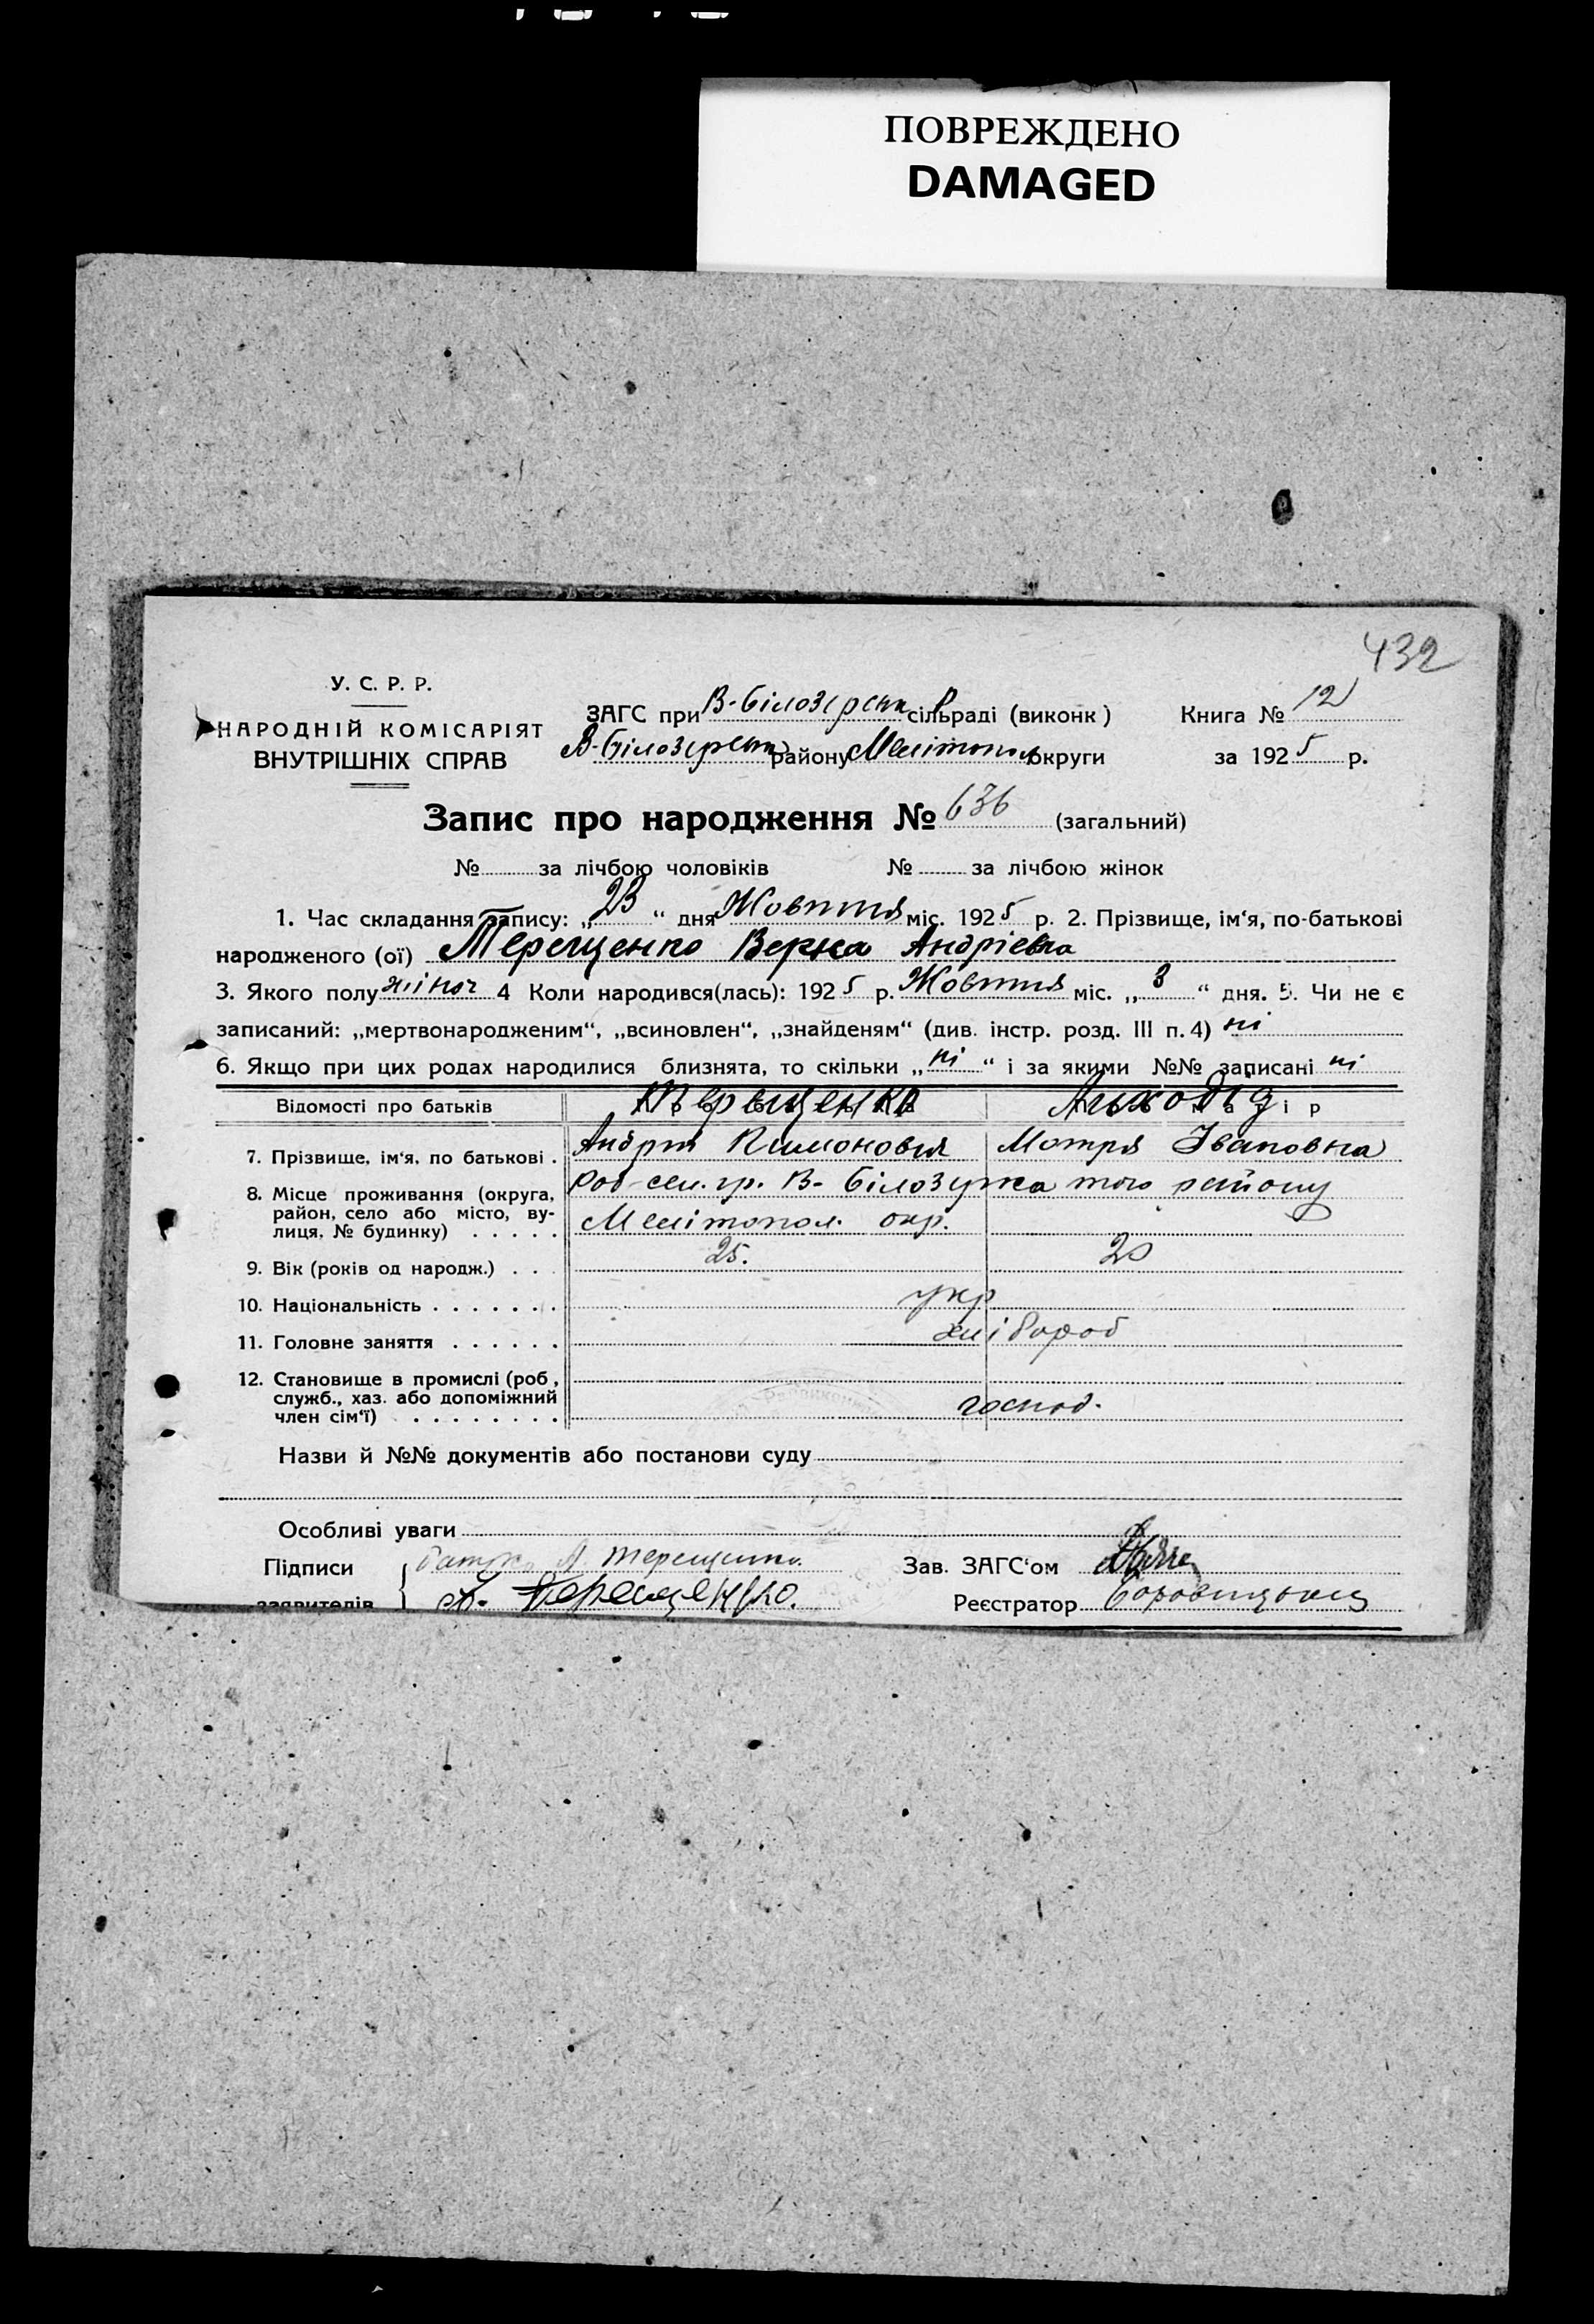 ПОВРЕЖДЕНО
DAMAGED
432
У. С. Р. Р.
НАРОДНІЙ КОМІСАРІЯТ
ВНУТРІШНІХ СПРАВ
ЗАГС при В-Білозерськ сільраді (виконк) Книга № 12
В-Білозерськ району Мелітопол округи за 1925 р.
Запис про народження № 636 (загальний)
№ за лічбою чоловіків № за лічбою жінок
1. Час складання запису: „23“ дня Жовтня міс. 1925 р. 2. Прізвище, ім‘я, по-батькові
народженого (ої) Терещенко Верка Андріевна
3. Якого полу жіноч 4 Коли народився(лась): 1925 р. Жовтня міс. „3“ дня. 5. Чи не є
записаний: „мертвонародженим“, „всиновлен“, „знайденям“ (див. інстр. розд. III п. 4) ні
6. Якщо при цих родах народилися близнята, то скільки „ні“ і за якими №№ записані ні
Відомості про батьків Терещенко Лиходід
7. Прізвище, ім‘я, по батькові . Андрій Мотря Івановна
8. Місце проживання (округа, район, село або місто, вулиця, № будинку) . . . . . В- Білозерка того району
Мелітопол. окр.
9. Вік (років од народж.) . . . 25. 20
10. Національність . . . . . . . укр
11. Головне заняття . . . . . . хлібороб
12. Становище в промислі (роб,
служб., хаз. або допоміжний
член сім‘ї) . . . . . . . . господ.
Назви й №№ документів або постанови суду
Особливі уваги
Підписи батько А. Терещенко. Зав. ЗАГС‘ом
заявителів А. Терещенко. Реєстратор